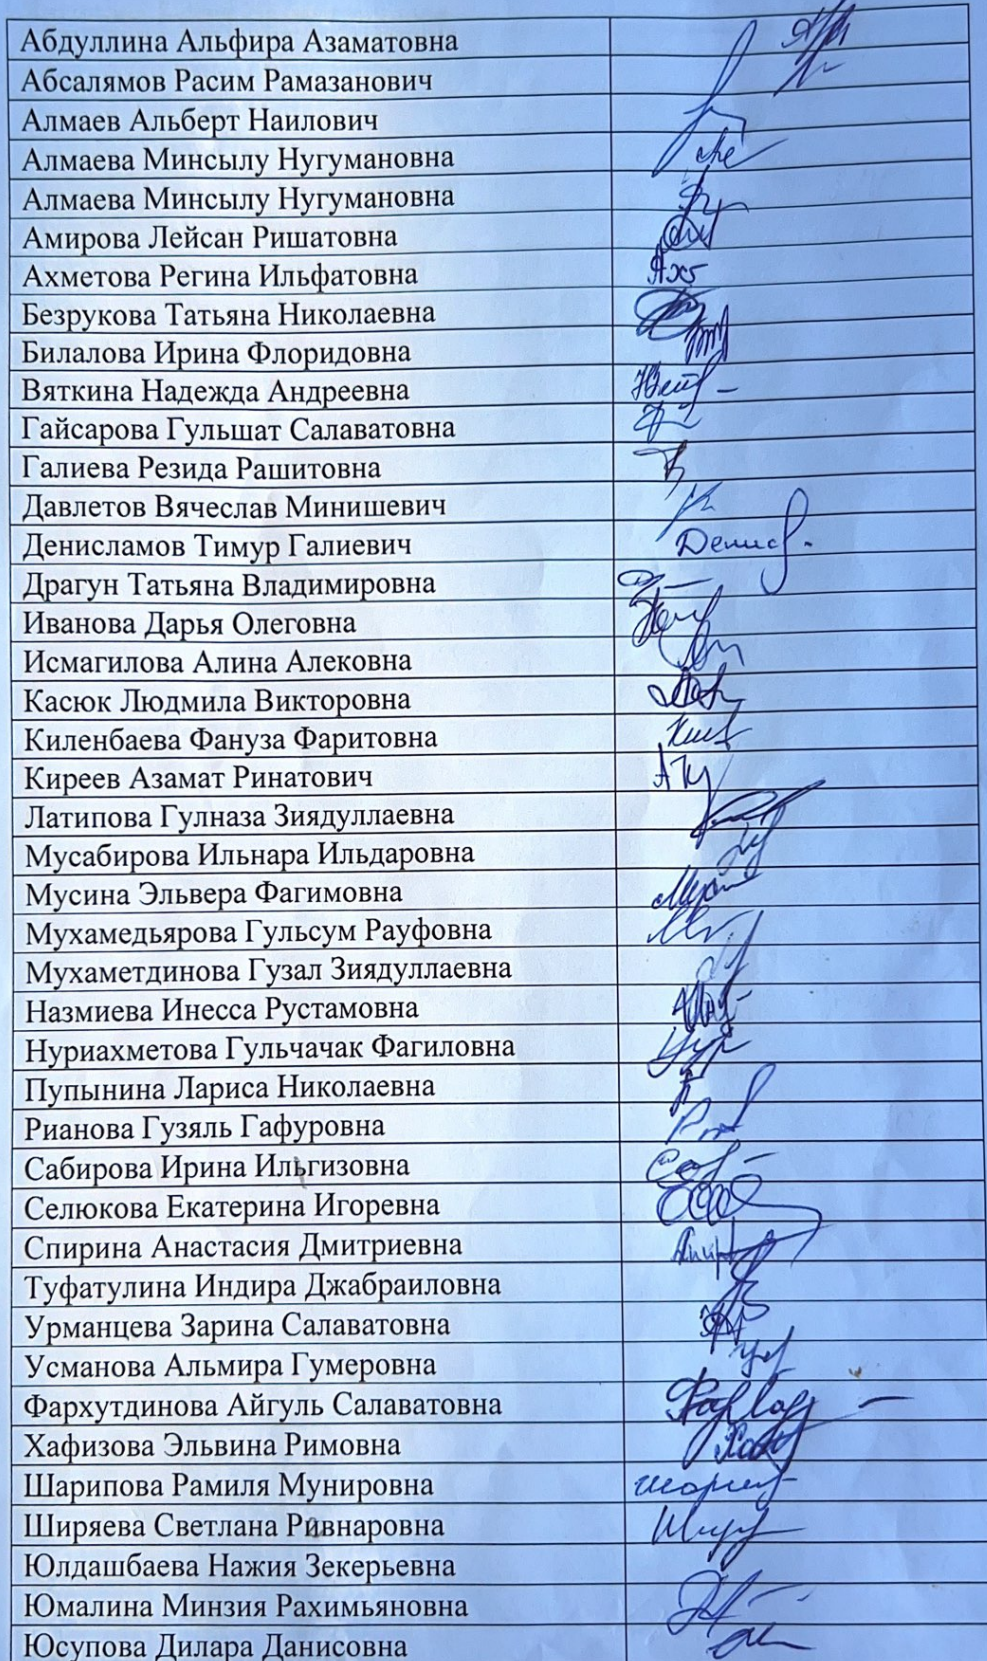 Абдуллина Альфира Азаматовна
Абсалямов Расим Рамазанович
Алмаев Альберт Наилович
Алмаева Минсылу Нугумановна
Алмаева Минсылу Нугумановна
Амирова Лейсан Ришатовна
Ахметова Регина Ильфатовна
Безрукова Татьяна Николаевна
Билалова Ирина Флоридовна
Вяткина Надежда Андреевна
Гайсарова Гульшат Салаватовна
Галиева Резида Рашитовна
Давлетов Вячеслав Минишевич
Денисламов Тимур Галиевич
Драгун Татьяна Владимировна
Иванова Дарья Олеговна
Исмагилова Алина Алековна
Касюк Людмила Викторовна
Киленбаева Фануза Фаритовна
Киреев Азамат Ринатович
Латипова Гулназа Зиядуллаевна
Мусабирова Ильнара Ильдаровна
Мусина Эльвера Фагимовна
Мухамедьярова Гульсум Рауфовна
Мухаметдинова Гузал Зиядуллаевна
Назмиева Инесса Рустамовна
Нуриахметова Гульчачак Фагиловна
Пупынина Лариса Николаевна
Рианова Гузяль Гафуровна
Сабирова Ирина Ильгизовна
Селюкова Екатерина Игоревна
Спирина Анастасия Дмитриевна
Туфатулина Индира Джабраиловна
Урманцева Зарина Салаватовна
Усманова Альмира Гумеровна
Фархутдинова Айгуль Салаватовна
Хафизова Эльвина Римовна
Шарипова Рамиля Мунировна
Ширяева Светлана Ривнаровна
Юлдашбаева Нажия Зекерьевна
Юмалина Минзия Рахимьяновна
Юсупова Дилара Данисовна